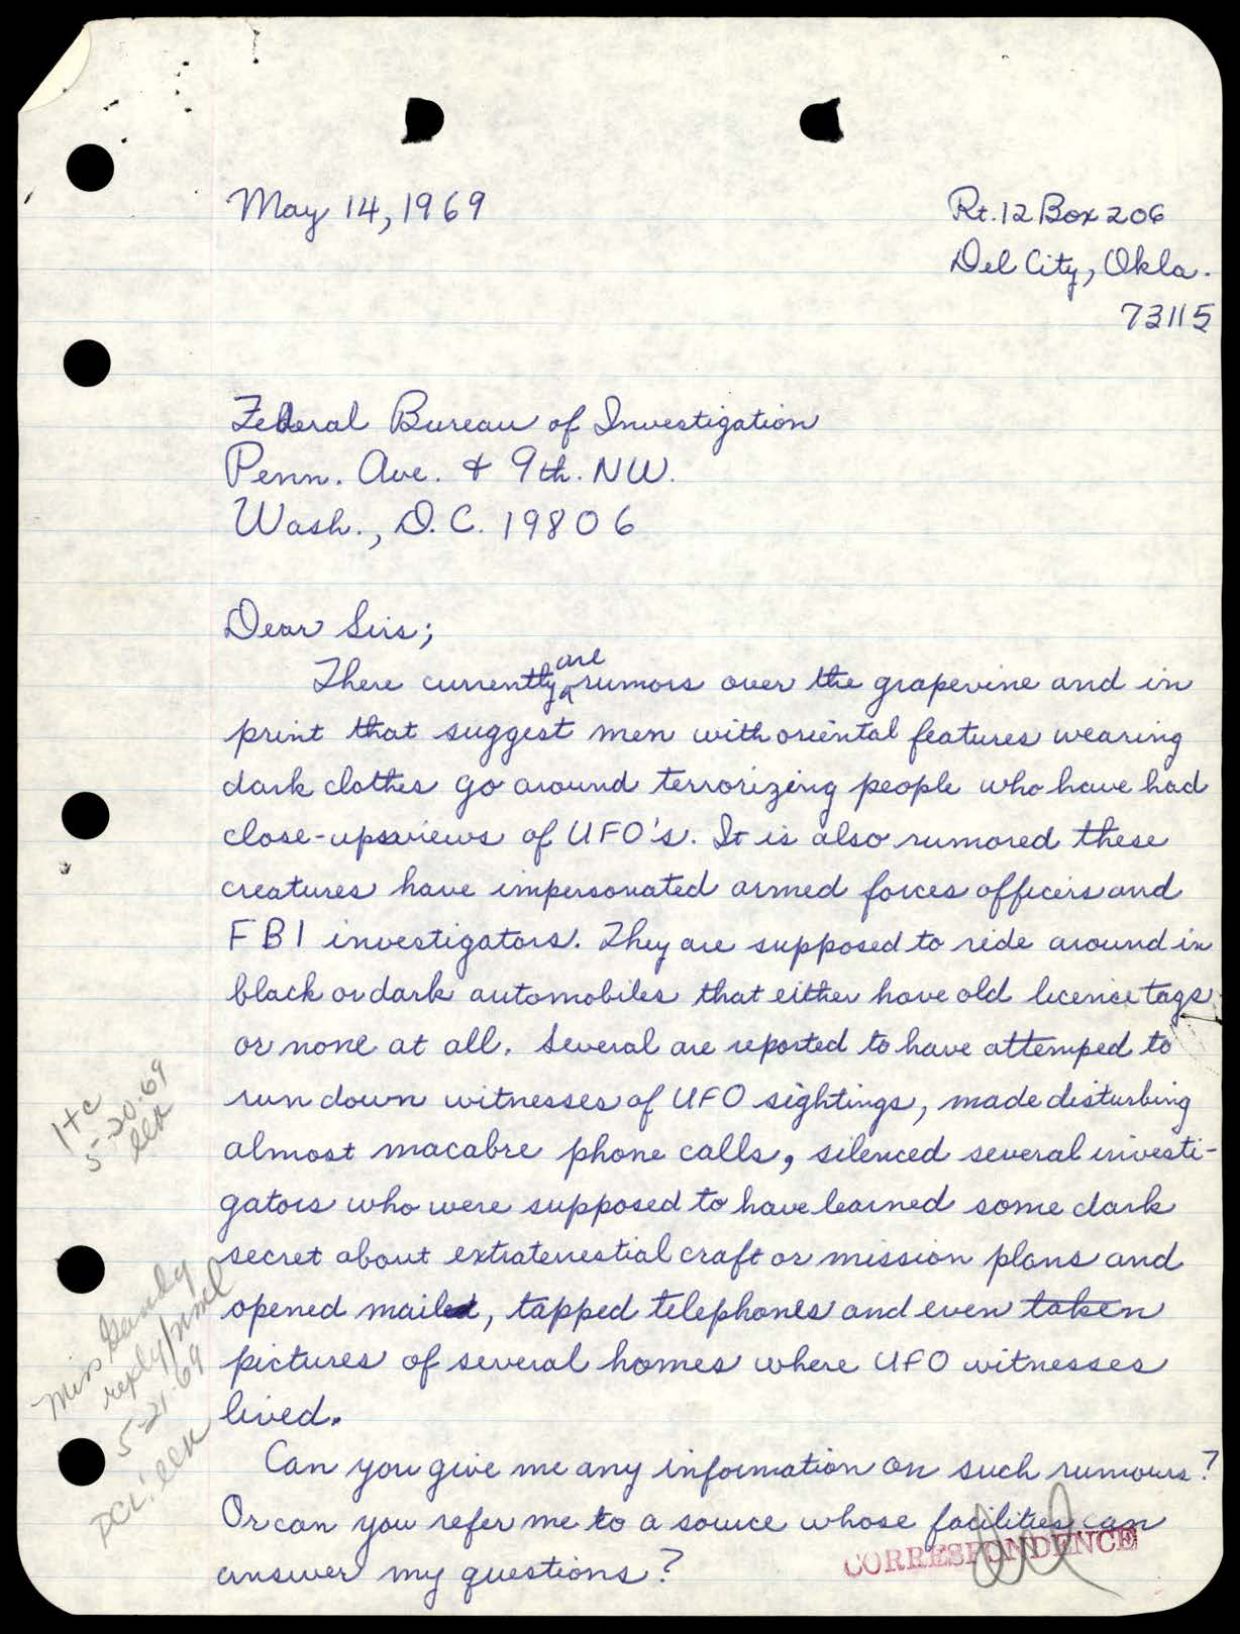 May 14, 1969
Rt. 12 Box 206
Del City, Okla.
73115
Federal Bureau of Investigation
Penn. Ave. & 9th. NW.
Wash., D.C. 19806
Dear Sirs;
There currently are rumors over the grapevine and in
print that suggest men with oriental features wearing
dark clothes go around terrorizing people who have had
close-ups views of UFO's. It is also rumored these
creatures have impersonated armed forces officers and
FBI investigators. They are supposed to ride around in
black or dark automobiles that either have old licence tags
or none at all. Several are reported to have attemped to
run down witnesses of UFO sightings, made disturbing
almost macabre phone calls, silenced several investi-
gators who were supposed to have learned some dark
secret about extraterrestial craft or mission plans and
opened mail, tapped telephones and even taken
pictures of several homes where UFO witnesses
lived.
Can you give me any information on such rumours?
Or can you refer me to a source whose facilities can
answer my questions?
CORRESPONDENCE
5-20-69
Miss Gandy
reply/nml
5-21-69